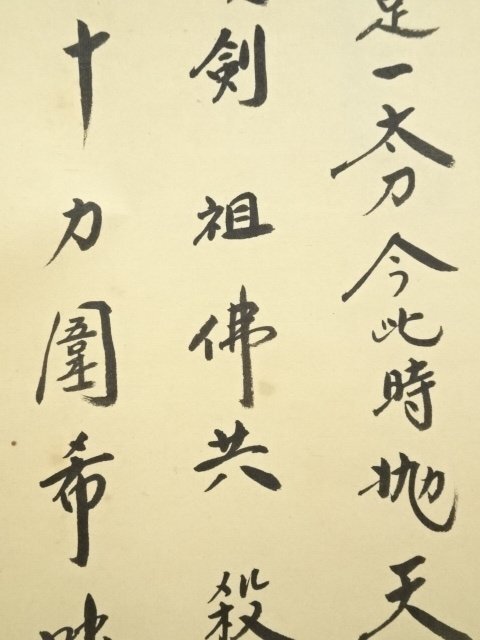 足一太刀今此時抛天
剣祖佛共殺
十力圍希